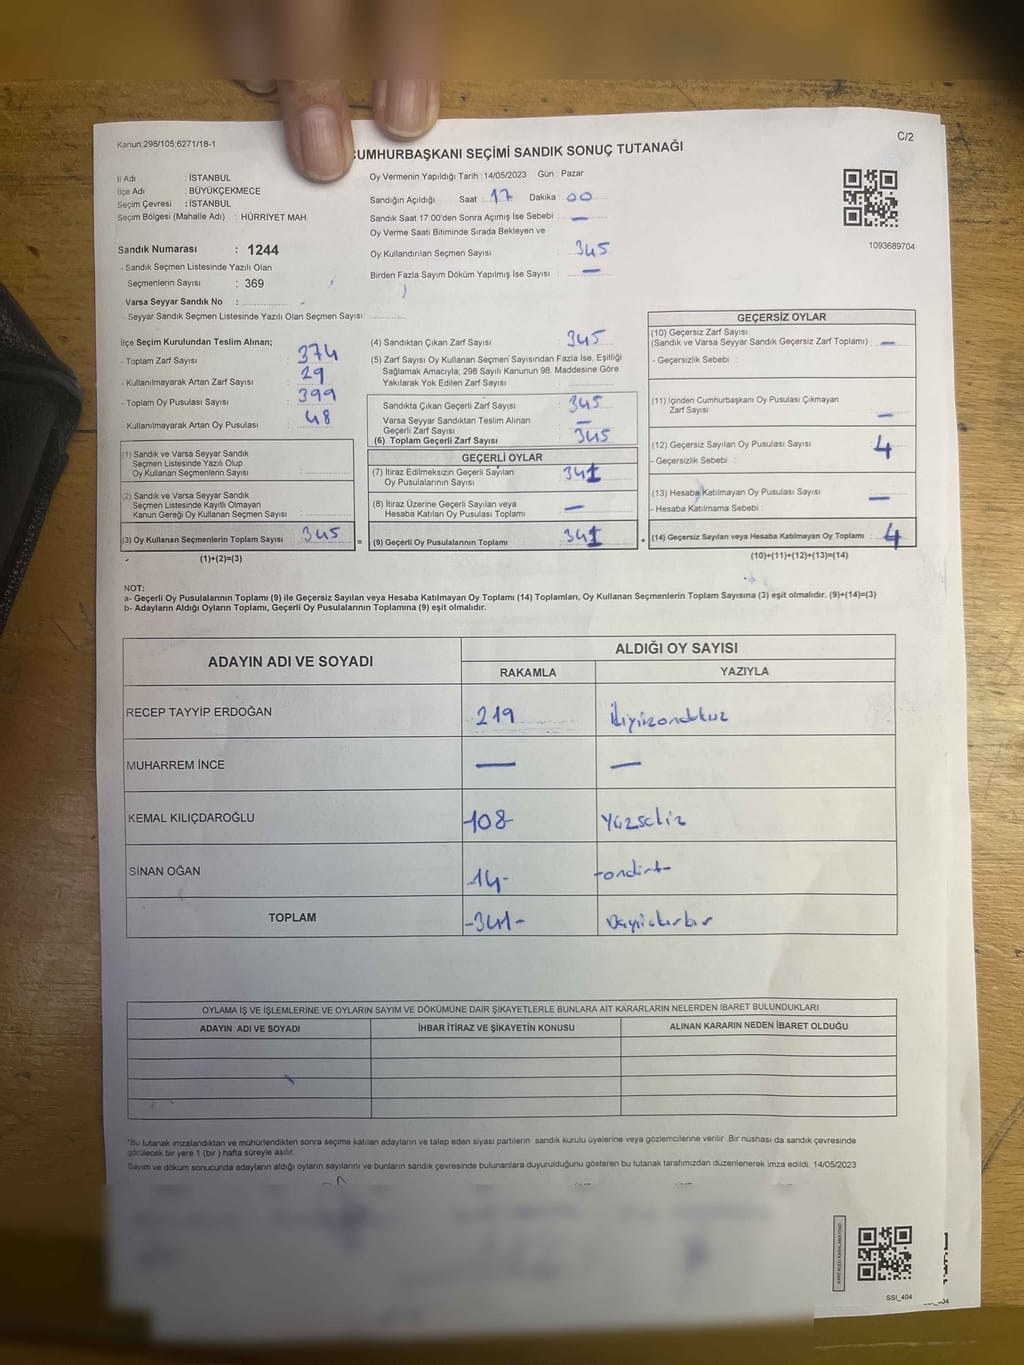 Kanun;298/105;6271/18-1
C/2
CUMHURBAŞKANI SEÇİMİ SANDIK SONUÇ TUTANAĞI
İl Adı : İSTANBUL
İlçe Adı : BÜYÜKÇEKMECE
Seçim Çevresi : İSTANBUL
Seçim Bölgesi (Mahalle Adı) : HÜRRİYET MAH.
Sandık Numarası : 1244
- Sandık Seçmen Listesinde Yazılı Olan
Seçmenlerin Sayısı : 369
Varsa Seyyar Sandık No :
- Seyyar Sandık Seçmen Listesinde Yazılı Olan Seçmen Sayısı:
Oy Vermenin Yapıldığı Tarih : 14/05/2023 Gün : Pazar
Sandığın Açıldığı Saat : 17 Dakika : 00
Sandık Saat 17:00'den Sonra Açımış İse Sebebi : —
Oy Verme Saati Bitiminde Sırada Bekleyen ve
Oy Kullandırılan Seçmen Sayısı : 345
Birden Fazla Sayım Döküm Yapılmış İse Sayısı : —
1093689704
İlçe Seçim Kurulundan Teslim Alınan;
- Toplam Zarf Sayısı : 374
- Kullanılmayarak Artan Zarf Sayısı : 29
- Toplam Oy Pusulası Sayısı : 399
- Kullanılmayarak Artan Oy Pusulası : 48
(1) Sandık ve Varsa Seyyar Sandık
Seçmen Listesinde Yazılı Olup
Oy Kullanan Seçmenlerin Sayısı :
(2) Sandık ve Varsa Seyyar Sandık
Seçmen Listesinde Kayıtlı Olmayan
Kanun Gereği Oy Kullanan Seçmen Sayısı :
(3) Oy Kullanan Seçmenlerin Toplam Sayısı : 345 =
(1)+(2)=(3)
(4) Sandıktan Çıkan Zarf Sayısı : 345
(5) Zarf Sayısı Oy Kullanan Seçmen Sayısından Fazla İse, Eşitliği
Sağlamak Amacıyla; 298 Sayılı Kanunun 98. Maddesine Göre
Yakılarak Yok Edilen Zarf Sayısı :
Sandıkta Çıkan Geçerli Zarf Sayısı : 345
Varsa Seyyar Sandıktan Teslim Alınan
Geçerli Zarf Sayısı : —
(6) Toplam Geçerli Zarf Sayısı : 345
GEÇERLİ OYLAR
(7) İtiraz Edilmeksizin Geçerli Sayılan
Oy Pusulalarının Sayısı : 341
(8) İtiraz Üzerine Geçerli Sayılan veya
Hesaba Katılan Oy Pusulası Toplamı : —
(9) Geçerli Oy Pusulalarının Toplamı : 341 +
GEÇERSİZ OYLAR
(10) Geçersiz Zarf Sayısı
(Sandık ve Varsa Seyyar Sandık Geçersiz Zarf Toplamı) : —
- Geçersizlik Sebebi :
(11) İçinden Cumhurbaşkanı Oy Pusulası Çıkmayan
Zarf Sayısı : —
(12) Geçersiz Sayılan Oy Pusulası Sayısı : 4
- Geçersizlik Sebebi :
(13) Hesaba Katılmayan Oy Pusulası Sayısı : —
- Hesaba Katılmama Sebebi :
(14) Geçersiz Sayılan veya Hesaba Katılmayan Oy Toplamı : 4
(10)+(11)+(12)+(13)=(14)
NOT:
a- Geçerli Oy Pusulalarının Toplamı (9) ile Geçersiz Sayılan veya Hesaba Katılmayan Oy Toplamı (14) Toplamları, Oy Kullanan Seçmenlerin Toplam Sayısına (3) eşit olmalıdır. (9)+(14)=(3)
b- Adayların Aldığı Oyların Toplamı, Geçerli Oy Pusulalarının Toplamına (9) eşit olmalıdır.
ADAYIN ADI VE SOYADI
ALDIĞI OY SAYISI
RAKAMLA YAZIYLA
RECEP TAYYİP ERDOĞAN 219 ikiyüzondokuz
MUHARREM İNCE — —
KEMAL KILIÇDAROĞLU 108 Yüzsekiz
SİNAN OĞAN -14- -ondört-
TOPLAM -341- üçyüzkırkbir
OYLAMA İŞ VE İŞLEMLERİNE VE OYLARIN SAYIM VE DÖKÜMÜNE DAİR ŞİKAYETLERLE BUNLARA AİT KARARLARIN NELERDEN İBARET BULUNDUKLARI
ADAYIN ADI VE SOYADI İHBAR İTİRAZ VE ŞİKAYETİN KONUSU ALINAN KARARIN NEDEN İBARET OLDUĞU
*Bu tutanak imzalandıktan ve mühürlendikten sonra seçime katılan adayların ve talep eden siyasi partilerin sandık kurulu üyelerine veya gözlemcilerine verilir. Bir nüshası da sandık çevresinde
görülecek bir yere 1 (bir ) hafta süreyle asılır.
Sayım ve döküm sonucunda adayların aldığı oyların sayılarını ve bunların sandık çevresinde bulunanlara duyurulduğunu gösteren bu tutanak tarafımızdan düzenlenerek imza edildi. 14/05/2023
SSI_404